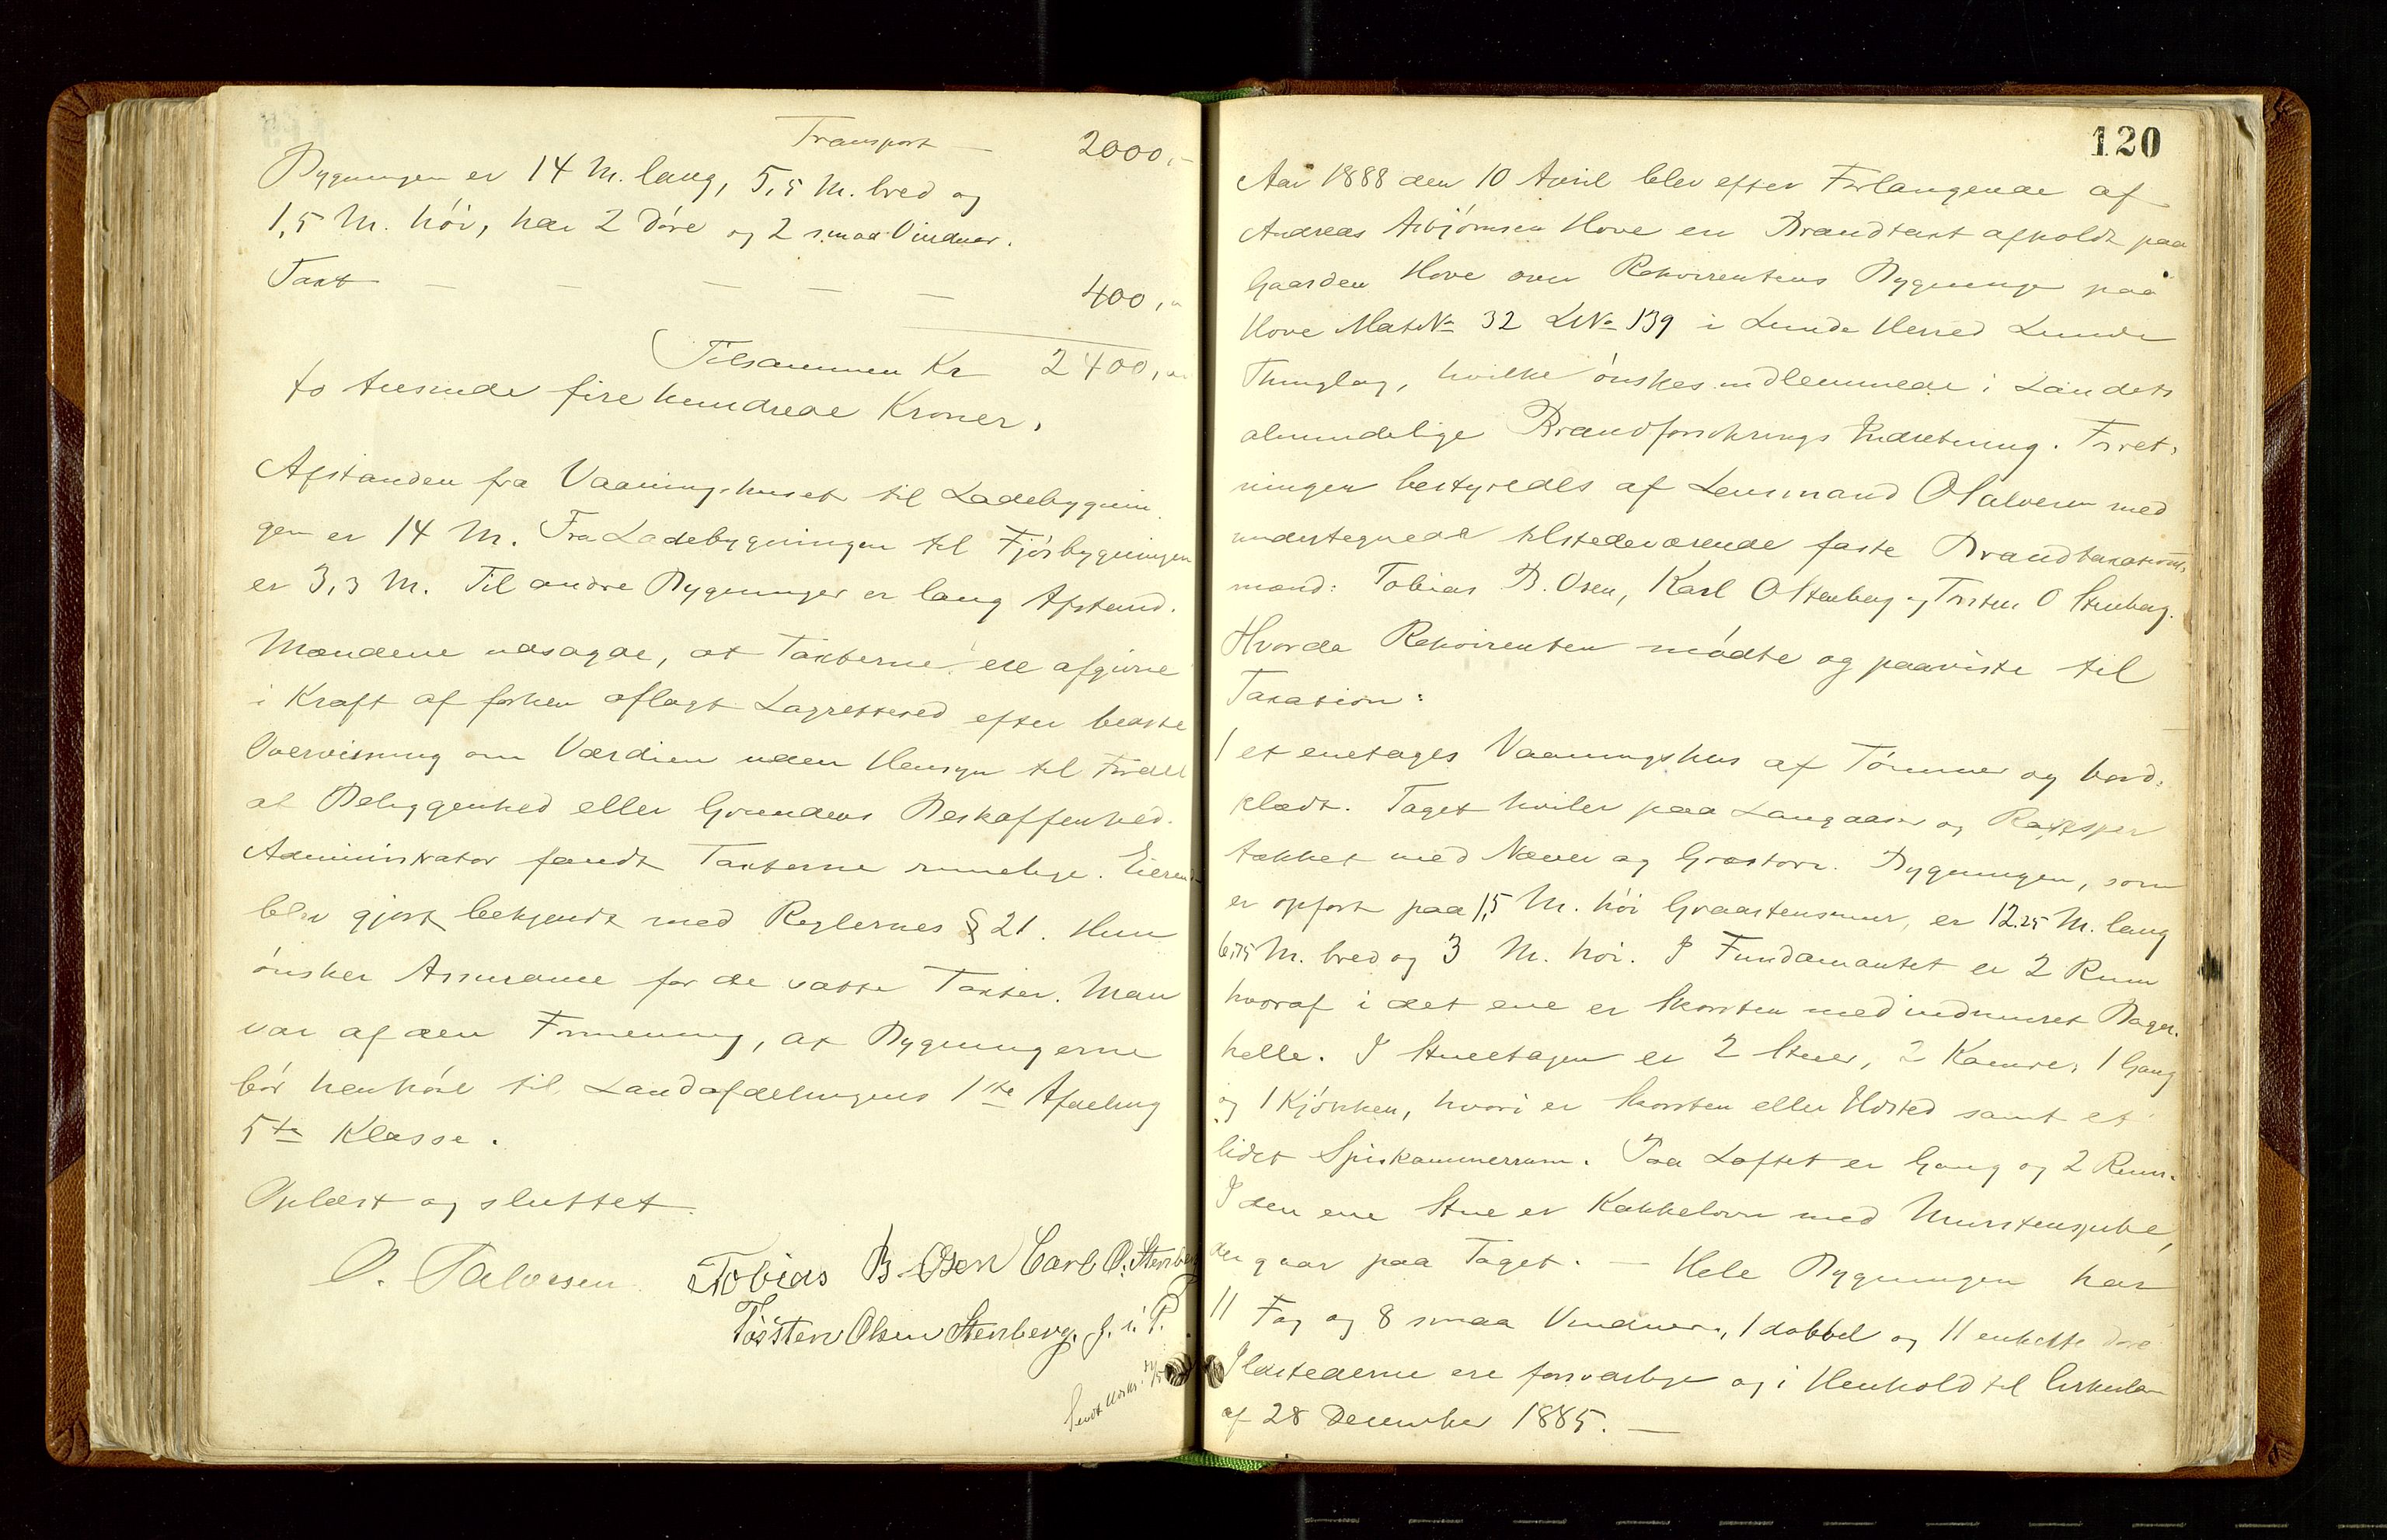 Transport — 2000,-
Bygningen er 14 M. lang, 5,5 M. bred og
1,5 M. høi, har 2 Døre og 2 smaa Vinduer.
Taxt — — — — — 400,"
Tilsammen Kr 2400,"
to tusinde fire hundrede Kroner.
Afstanden fra Vaaningshuset til Ladebygnin
gen er 14 M. Fra Ladebygningen til Fjøsbygningen
er 3,3 M. Til andre Bygninger er lang Afstand.
Mændene udsagde, at Taxterne ere afgivne
i Kraft af forhen aflagt Lagretteed efter bedste
Overvisning om Værdien uden Hensyn til Fordel
at Beliggenhed eller Grundens Beskaffenhed.
Administrator fandt Taxterne rimelige. Eieren
blev gjort bekjendt med Reglernes § 21. Hun
ønsker Assurance for de satte Taxter. Man
var af den Formening, at Bygningerne
bør henhøre til Landafdelingens 1ste Afdeling
5te Klasse.
Oplæst og sluttet.
O. Salvesen Tobias B Osen Carl O. Stenberg
Torsten Olsen Stenberg. f. i. P.
120
Aar 1888 den 10 April blev efter Forlangende af
Andreas Asbjørnsen Hove en Brandtaxt afholdt paa
Gaarden Hove over Rekvirentens Bygninger paa
Hove MatrNo 32 LNo 139 i Lunde Herred Lunde
Thinglag, hvilke ønskes indlemmede i Landets
almindelige Brandforsikrings Indretning. Forret,
ningen bestyredes af Lensmand O Salvesen med
undertegnede tilstedeværende faste Brandtaxations,
mænd: Tobias B. Osen, Karl O Stenberg og Torsten O Stenberg.
Hvorda Rekvirenten mødte og paaviste til
Taxation:
1 et enetages Vaaningshus af Tømmer og bord,
klædt. Taget hviler paa Langaaser og
tækket med Næver og Græstorv. Bygningen, som
er opført paa 1,5 M. høi Graastensmur, er 12.25 M. lang
6,75 M. bred og 3 M. høi. I Fundamentet er 2 Rum
hvoraf i det ene er Skorsten med indmuret Bager,
helle. I Stueetagen er 2 Stuer, 2 Kamre, 1 Gang
og 1 Kjøkken, hvori er Skorsten eller Ildsted samt et
lidet Spiskammerrum. Paa Loftet er Gang og 2 Rum.
I den ene Stue er Kakkelovn med Murstenspibe,
der gaar paa Taget. — Hele Bygningen har
11 Fag og 8 smaa Vinduer, 1 dobbel og 11 enkelte Døre
Ildstederne ere forsvarlige og i Henhold til Cirkulær
af 28 December 1885. —